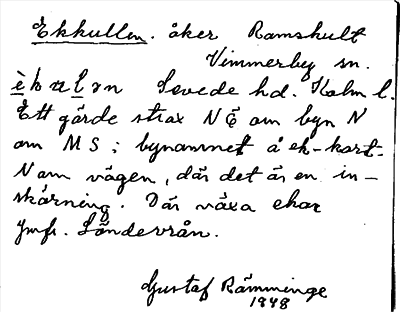 Ekkullen. åker Ramshult
Vimmerby sn.
èkulən Sevede hd. Kalm l.
Ett gärde strax NÖ om byn N
om MS; bynamnet å ek-kart.
N om vägen, där det är en in-
skärning. Där växa ekar
Jmfr. Söndevrån.
Gustaf Rämminge
1948